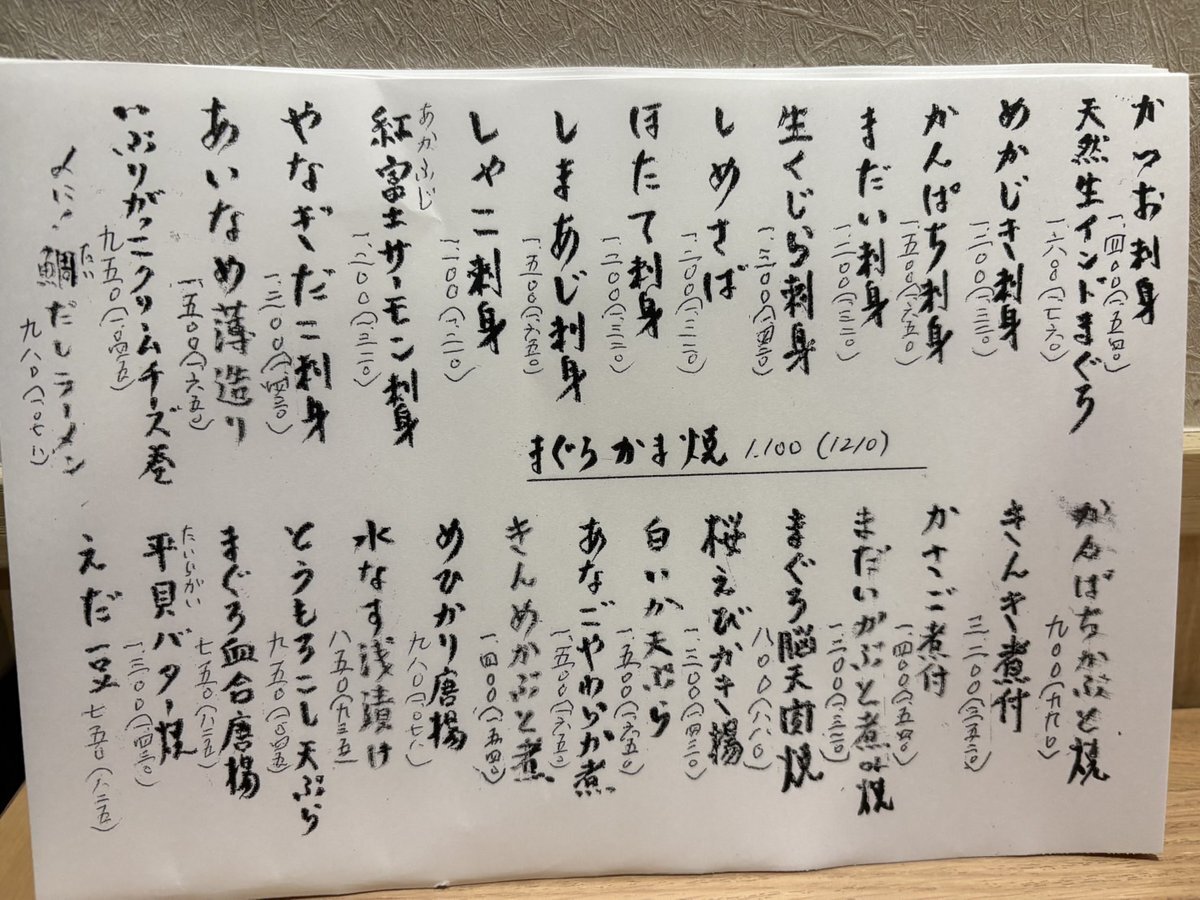 かつお刺身 一、四〇〇(一、五四〇)
天然生インドまぐろ 一、六〇〇(一、七六〇)
めかじき刺身 一、二〇〇(一、三二〇)
かんぱち刺身 一、五〇〇(一、六五〇)
まだい刺身 一、二〇〇(一、三二〇)
生くじら刺身 一、三〇〇(一、四三〇)
しめさば 一、二〇〇(一、三二〇)
ほたて刺身 一、二〇〇(一、三二〇)
しまあじ刺身 一、五〇〇(一、六五〇)
しゃこ刺身 一、一〇〇(一、二一〇)
あかふじ
紅富士サーモン刺身 一、二〇〇(一、三二〇)
やなぎだこ刺身 一、三〇〇(一、四三〇)
あいなめ薄造り 一、五〇〇(一、六五〇)
いぶりがっこクリームチーズ巻 九五〇(一、〇四五)
たい
〆に!鯛だしラーメン 九八〇(一、〇七八)
まぐろかま焼 1.100 (1210)
かんぱちかぶと焼 九〇〇(九九〇)
きんき煮付 三、二〇〇(三、五二〇)
かさご煮付 一、四〇〇(一、五四〇)
まだいかぶと煮or焼 一、二〇〇(一、三二〇)
まぐろ脳天肉焼 八〇〇(八八〇)
桜えびかき揚 一、三〇〇(一、四三〇)
白いか天ぷら 一、五〇〇(一、六五〇)
あなごやわらか煮 一、五〇〇(一、六五〇)
きんめかぶと煮 一、四〇〇(一、五四〇)
めひかり唐揚 九八〇(一、〇七八)
水なす浅漬け 八五〇(九三五)
とうもろこし天ぷら 九五〇(一、〇四五)
まぐろ血合唐揚 七五〇(八二五)
たいらがい
平貝バター焼 一、三〇〇(一、四三〇)
えだ豆 七五〇(八二五)